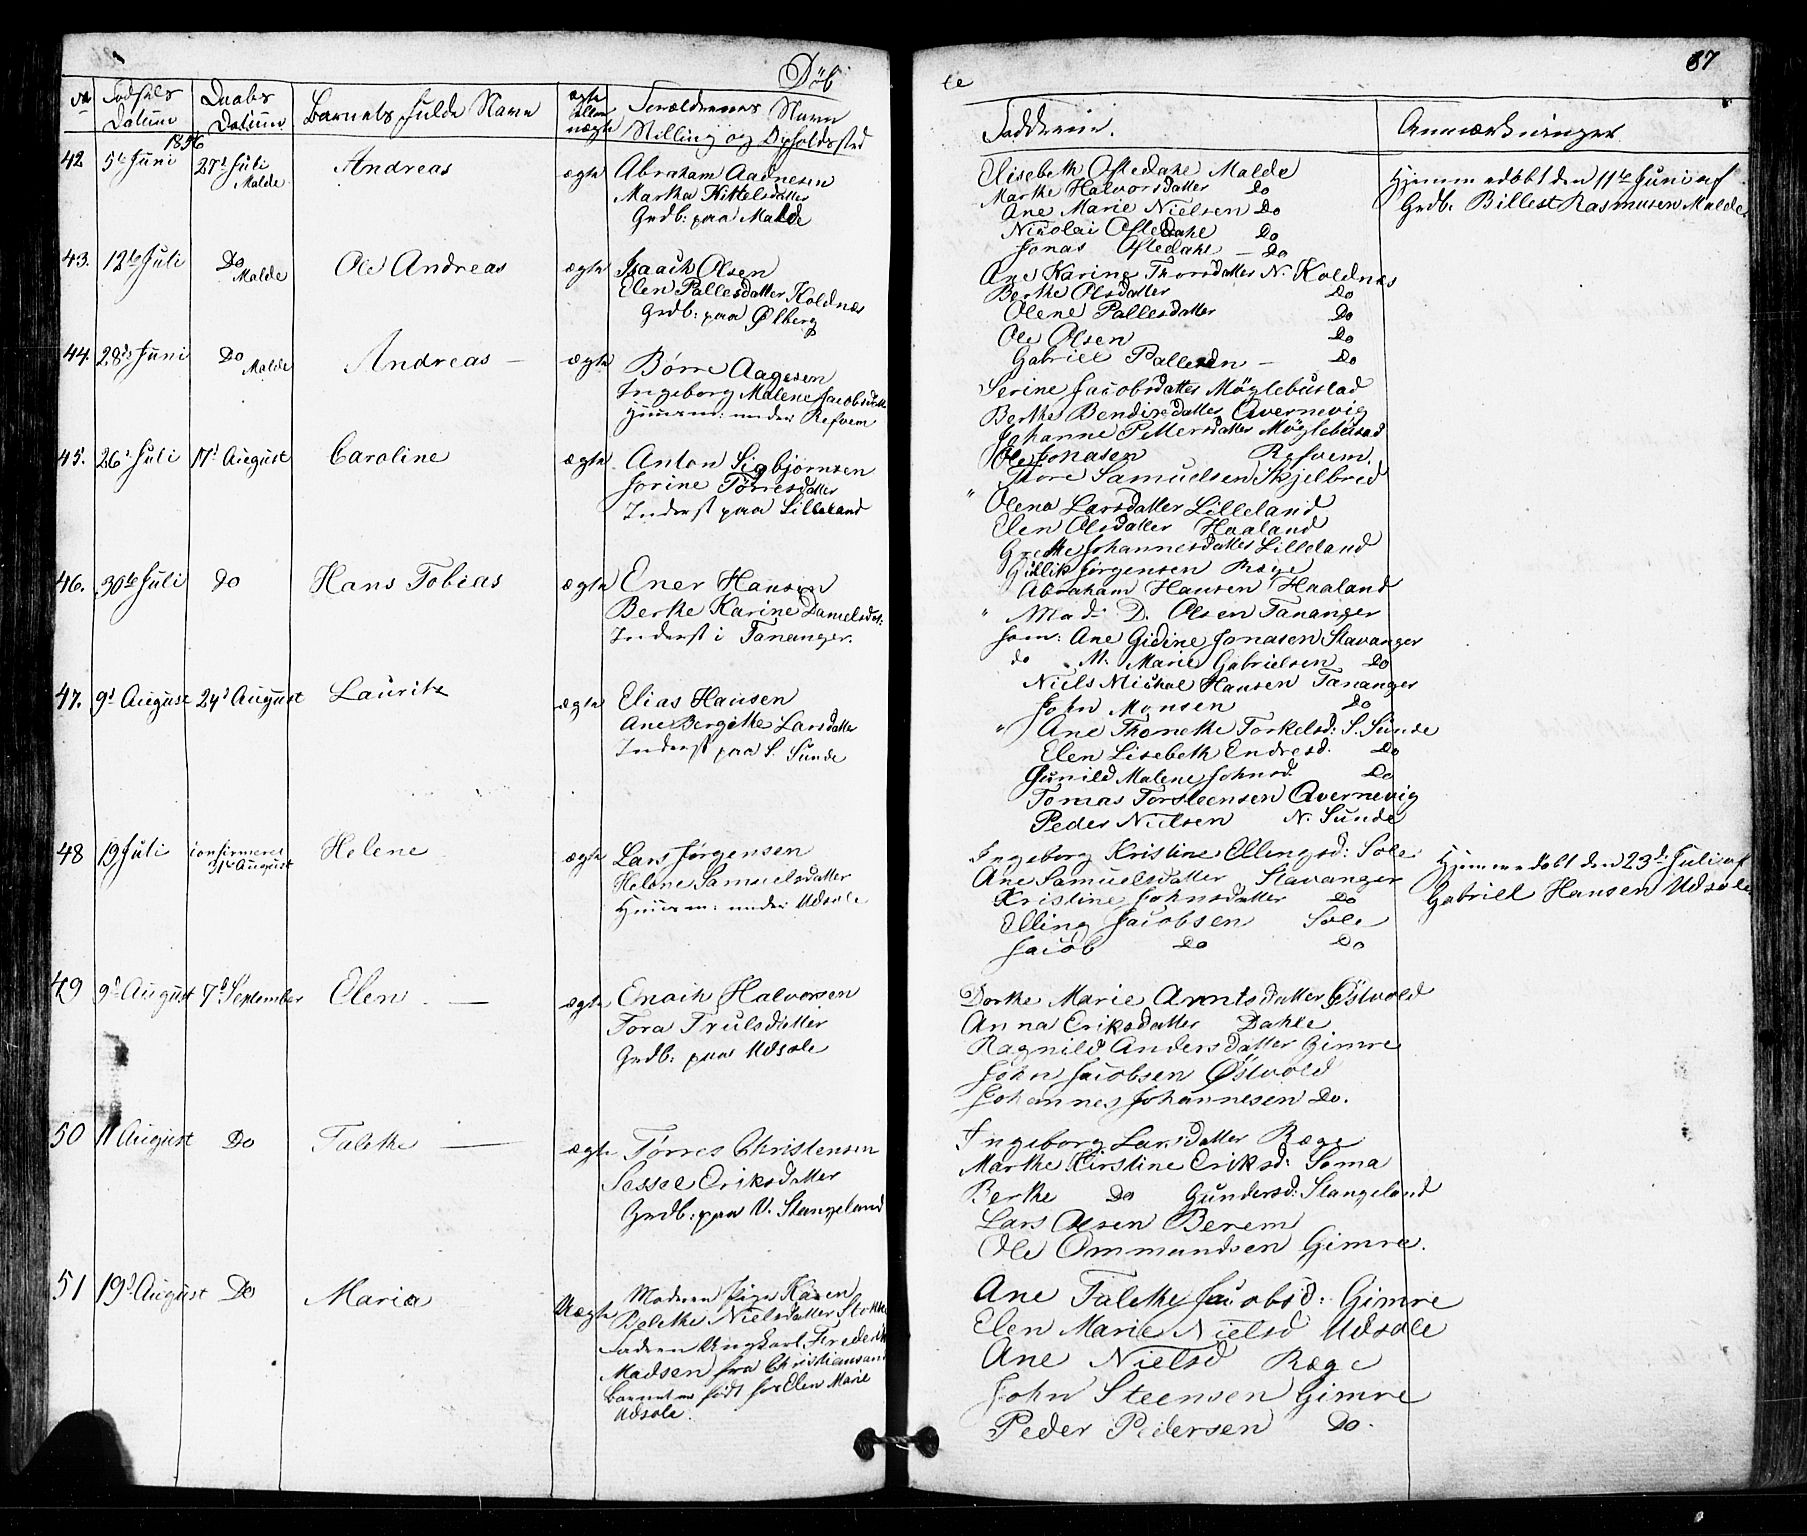 Døb
te
87
No
Fødsels
Datum
Daabs
Datum
Barnets fulde Navn
ægte
eller
uægte
Forældrenes Navn
Stilling og Opholdssted
Fadderne.
Anmærkninger
1856
42 5te Juni 27d Juli Malde Andreas ægte
Abraham Aadnesen
Martha Kittelsdatter
Grdb: paa Malde
Elisebeth Oftedahl Malde
Marthe Halvorsdatter Do
Ane Marie Nielsen Do
Nicolai Oftedahl Do
Jonas Oftedahl — Do
Hjemmedøbt den 11te Juni af
Grdb. Billest Rasmusen Malde
43. 12te Juli Do Malde Ole Andreas ægte
Isaach Olsen
Elen Pallesdatter Koldnæs
Grdb: paa Ølberg
Ane Karine Thorsdatter N. Koldnes
Berthe Olsdatter Do
Olene Pallesdatter Do
Ole Olsen Do
Gabriel Pallesen — Do
44. 28de Juni Do Malde Andreas — ægte
Børre Aagesen
Ingeborg Malene Jacobsdatter
Huusm: under Refvem
Serine Jacobsdatter Møglebustad
Berthe Bendixdatter Avernevig
Johanne Pettersdatter Møglebustad
Ole Jonasen Refvem
Thore Samuelsen Skjelbred
45. 26d Juli 17d August Caroline ægte
Anton Sigbjørnsen
Jorine Tørresdatter
Inderst paa Lilleland
" Olena Larsdatter Lilleland
Elen Olsdatter Haaland
Grethe Johannesdatter Lilleland
Gullik Jørgensen Ræge
Abraham Hansen Haaland
46. 30te Juli Do Hans Tobias ægte
Ener Hansen
Berthe Karine Danielsdt:
Inderst i Tananger.
" Mad: D. Olsen Tananger
Jom: Ane Gidine Jonasen Stavanger
do M. Marie Gabrielsen Do
Niels Michal Hansen Tananger
John Monsen Do
47. 9d August 24d August Lauritz ægte
Elias Hansen
Ane Bergitte Larsdatter
Inderst paa S. Sunde
" Ane Thonethe Torkelsd: S. Sunde
Elen Lisebeth Endresd. Do
Gunild Malene Johnsd. Do
Tomas Torsteensen Avernevig
Peder Nielsen N. Sunde
48 19 Juli confirmeret 31te August Helene ægte
Lars Jørgensen
Helene Samuelsdatter
Huusm: under Udsole
Ingeborg Kristine Ellingsd: Sole
Ane Samuelsdatter Stavanger
Kristine Johnsdatter Do
Elling Jacobsen Sole
Jacob Do Do
Hjemmedøbt den 23d Juli af
Gabriel Hansen Udsole
49 9d August 7d September Elen — ægte
Enoch Halvorsen
Tora Trulsdatter
Grdb: paa Udsole
Dorthe Marie Arntsdatter Østvold
Anna Eriksdatter Dahle
Ragnild Andersdatter Gimre
John Jacobsen Østvold
Johannes Johannesen Do.
50 11 August Do Talethe — ægte
Tørres Christensen
Sessel Eriksdatter
Grdb: paa V. Stangeland
Ingeborg Larsdatter Ræge
Marthe Kirstine Eriksd: Soma
Berthe Do Gundersd: Stangeland
Lars Olsen Berem
Ole Ommundsen Gimre.
51 19d August Do Maria Uægte
Moderen Pige Karen
Bolethe Nielsdatter Stokke
Faderen Ungkarl Frederik
Madsen fra Christiansand
Barnet er født hos Elen Marie
Udsole.
Ane Talethe Jacobsd: Gimre
Elen Marie Nielsd Udsole
Ane Nielsd Ræge
John Steensen Gimre
Peder Pedersen Do.